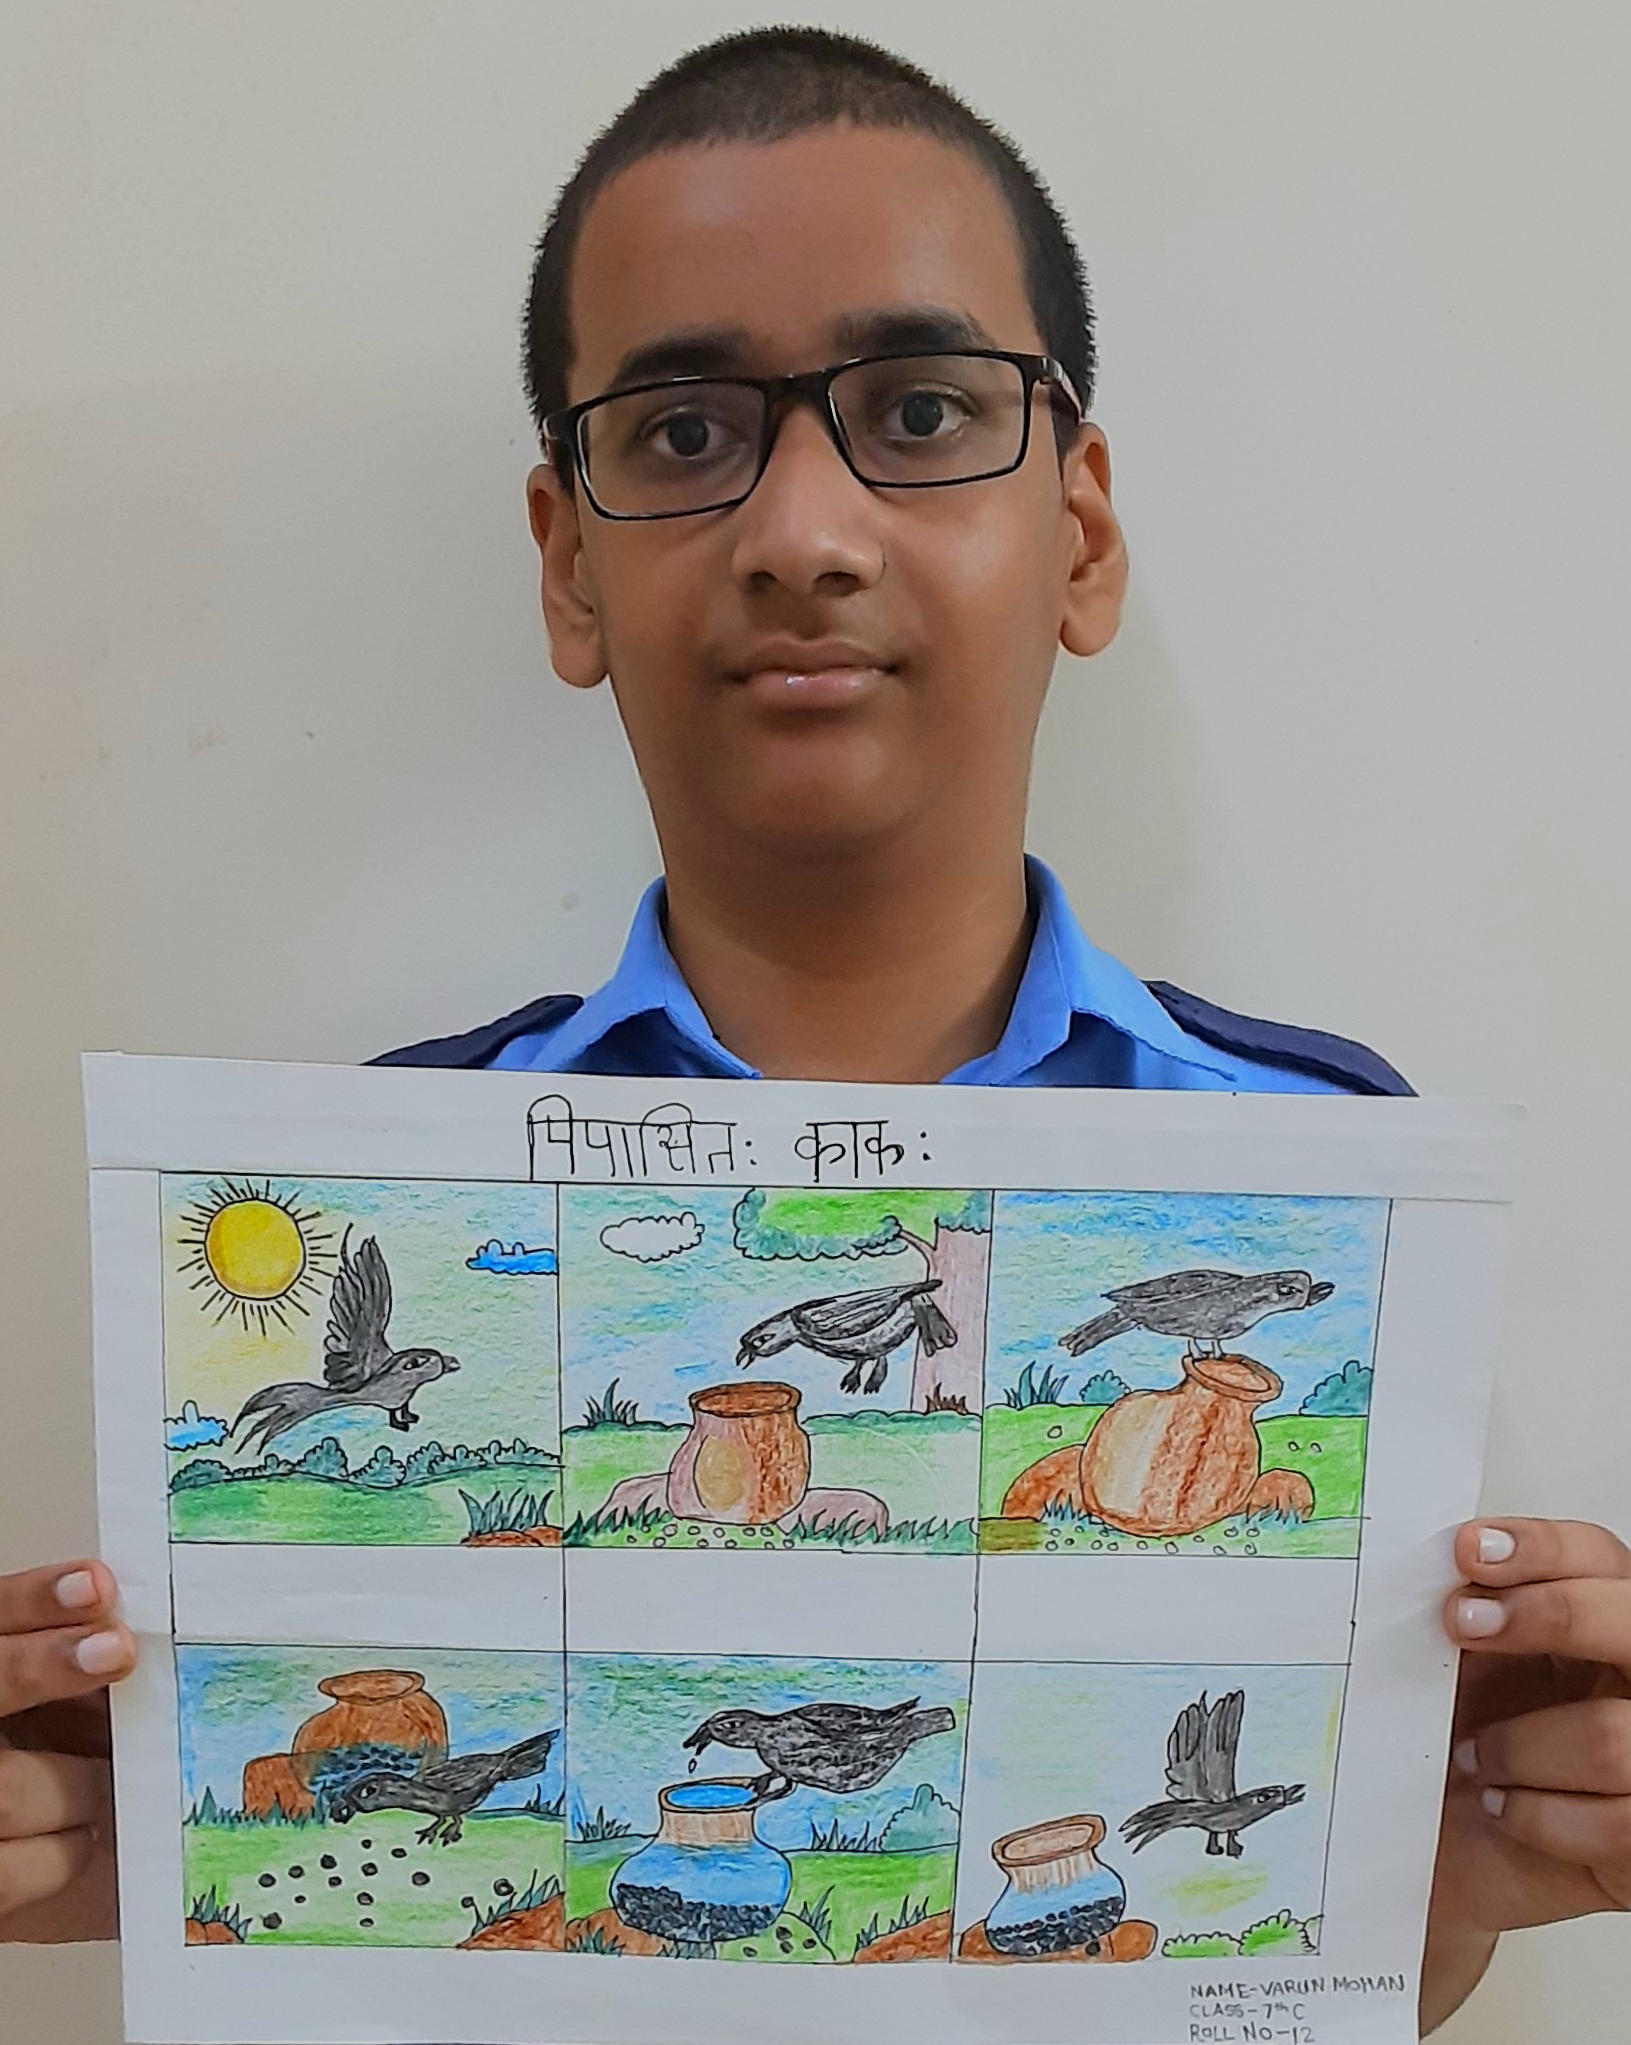 पिपासितः काकः
NAME-VARUN MOHAN
CLASS-7th C
ROLL NO-12